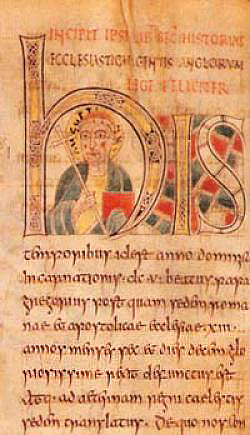 INCIPIT IPSIUS LIB SEC HISTORIAE
ECCLESIASTICAE GENTIS ANGLORUM
LEGE FELICITER
hIS
temporibus id est anno dominic
incarnationis .dc.v. beatus papa
gregorius postquam sedem roma
nae et apostolicae ecclesiae .xiii.
annos menses sex et dies decem glo
rexit defunctus est
atq; ad aeternam regni caelestis
sedem translatus. De quo nos